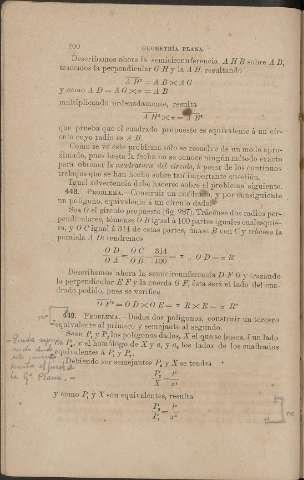 200 GEOMETRÍA PLANA
Describamos ahora la semicircunferencia A H B sobre A B,
tracemos la perpendicular G H y la A H, resultando
A H² = A B × A G
y como A D = A G × π = A B
multiplicando ordenadamente, resulta
A H² × π =
que prueba que el cuadrado propuesto es equivalente á un cír-
culo cuyo radio es A B.
Como se ve este problema sólo se resuelve de un modo apro-
ximado, pues hasta la fecha no se conoce ningún método exacto
para obtener la cuadratura del círculo, á pesar de los continuos
trabajos que se han hecho sobre tan importante cuestión.
Igual advertencia debe hacerse sobre el problema siguiente.
448. PROBLEMA.—Construir un cuadrado, y por consiguiente
un polígono, equivalente á un círculo dado.
Sea O el círculo propuesto (fig. 287). Trácense dos radios per-
pendiculares, tómense O B igual á 100 partes iguales cualesquie-
ra, y O C igual á 314 de estas partes, únase B con C y trácese la
paralela A D; tendremos
O D / O A = O C / O B = 314 / 100 = π , O D = π R
Describamos ahora la semicircunferencia D F G y trazando
la perpendicular E F y la cuerda O F, ésta será el lado del cua-
drado pedido, pues se verifica
O F² = O D × O E = π R × R = π R²
449. PROBLEMA.—Dados dos polígonos, construir un tercero
equivalente al primero y semejante al segundo.
Sean P₁ y P₂ los polígonos dados, X el que se busca, l un lado
P₂, x el homólogo de X y a₁ y a₂ los lados de los cuadrados
equivalentes á P₁ y P₂.
Debiendo ser semejantes P₂ y X se tendrá
P₂ / X = l² / x²
y como P₁ y X son equivalentes, resulta
P₂ / P₁ = l² / x²